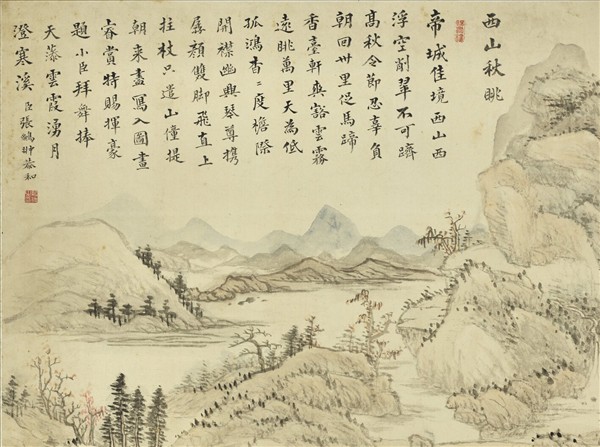 西山秋眺
帝城佳境西山西
浮空削翠不可躋
髙秋令節忍辜負
朝回卅里促馬蹄
香臺軒爽豁雲霧
遠眺萬里天為低
孤鴻杳〻度檐際
開襟幽興琴尊携
孱顏雙脚飛直上
拄杖只遣山僮提
朝來盡寫入圖畫
睿賞特賜揮豪
題小臣拜舞捧
天藻雲霞湧月
澄寒溪 臣張鵬翀恭和